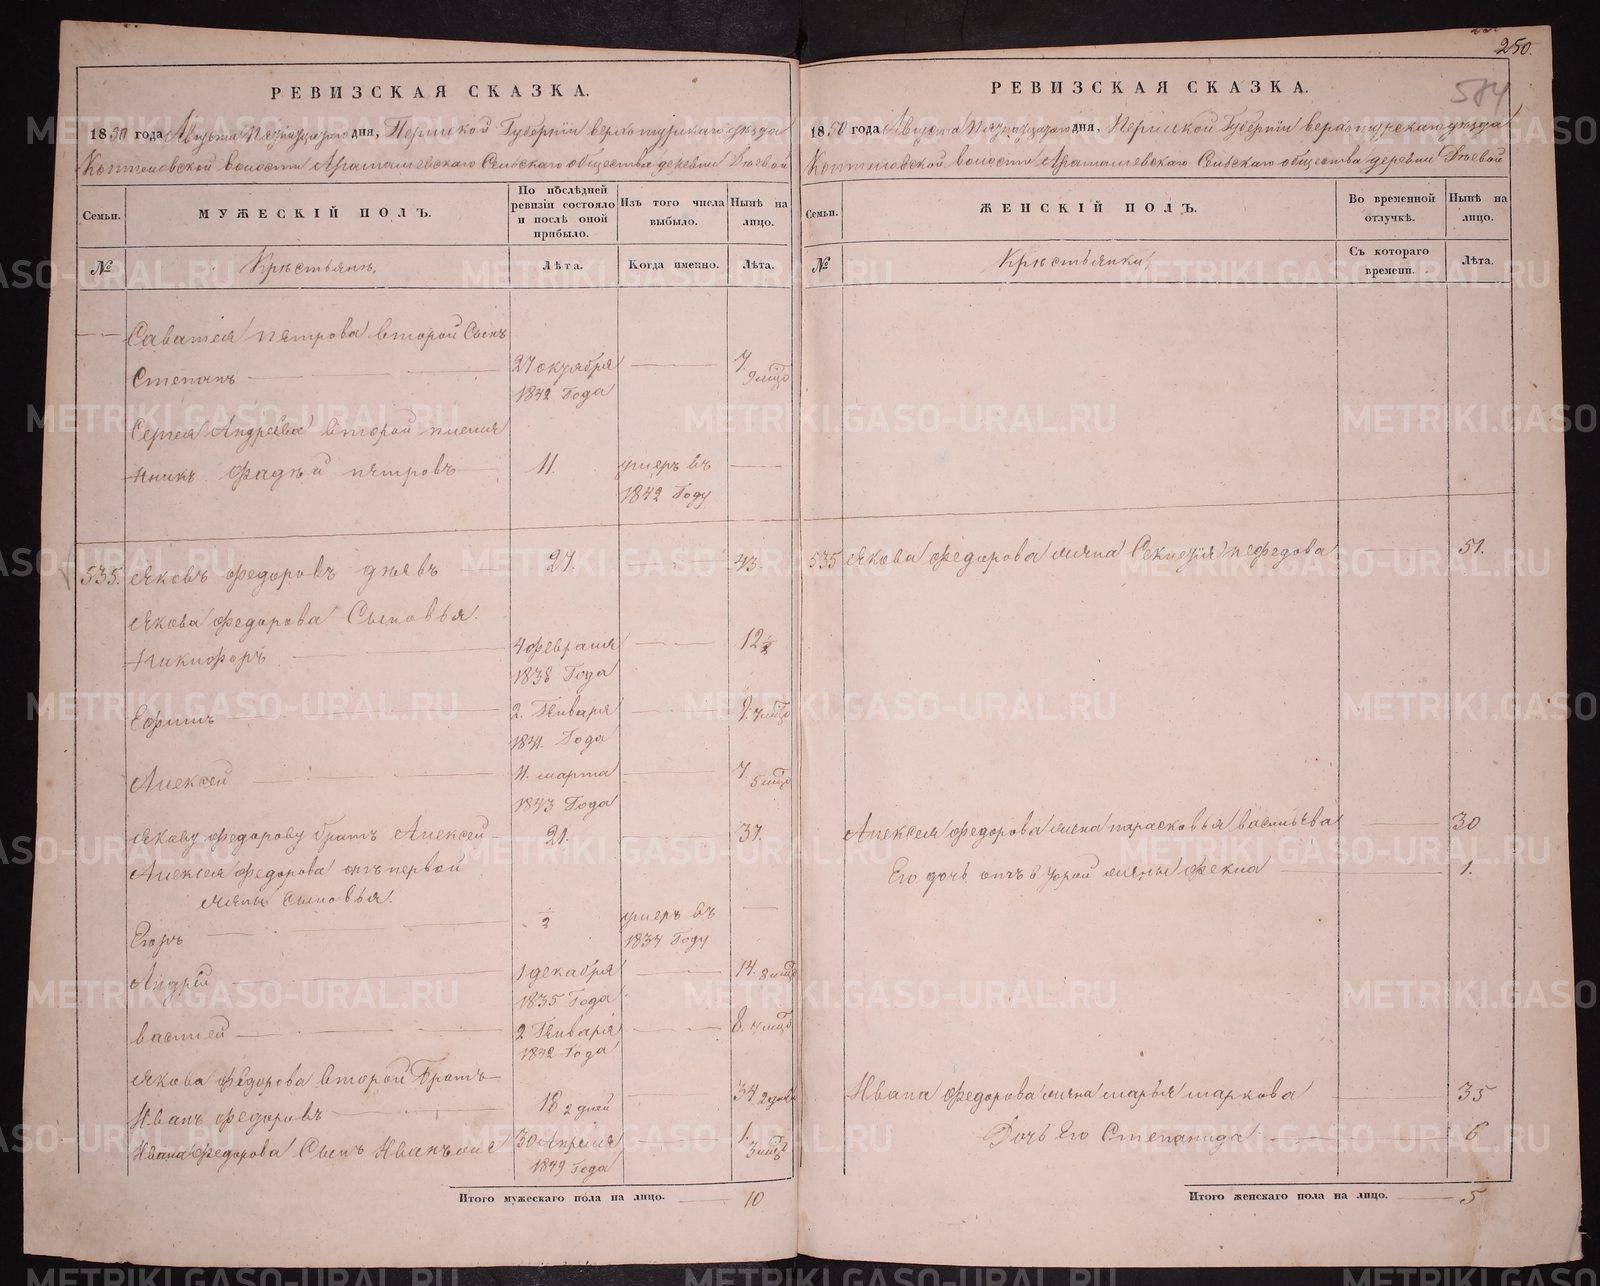 250.
584
РЕВИЗСКАЯ СКАЗКА.
1850 года Августа Пятнадцатого дня, Пермской Губернїи верхотурскаго уезда
Коптеловской волости Арамашевскаго Сельскаго общества деревни Деевой
Семьи.
МУЖЕСКІЙ ПОЛЪ.
По послѣдней ревизіи состояло и послѣ оной прибыло.
Изъ того числа выбыло.
Нынѣ на лицо.
№
Крестьянъ,
Лѣта.
Когда именно.
Лѣта.
Саватея петрова второй Сынъ
Степанъ 27 октября 7. 9 мѣц
1842 Года
Сергея Андреева второй племя
нникъ Фадѣй петровъ 11. умеръ въ
1842 Году
535. Яковъ Федоровъ деевъ 27. 43.
Якова Федорова Сыновья.
Никифоръ 4 февраля 12 ½
1838 Года
Ефимъ 2. Генваря 9. 7 мѣц
1841. Года
Алексей 11. марта 7. 5 мѣц
1843 Года
Якову Федорову братъ Алексей 21. 37.
Алексея Федорова отъ первой
жены сыновья.
Егоръ умеръ въ
1834 Году
Андрей 1 декабря 14. 8 мѣц
1835 Года
василей 2 Генваря 8. 7 мѣц
1842 Года
Якова Федорова второй Братъ
Иванъ Федоровъ 18 2 дней 34
Ивана Федорова Сынъ 30 Апреля 1. 3 мѣц
1849 Года
Итого мужескаго пола на лицо. 10
РЕВИЗСКАЯ СКАЗКА.
1850 года Августа Пятнадцатого дня, Пермской Губернїи верхотурскаго уезда
Коптеловской волости Арамашевскаго Сельскаго общества деревни Деевой
Семьи.
ЖЕНСКІЙ ПОЛЪ.
Во временной отлучкѣ.
Нынѣ на лицо.
№
Крестьянки,
Съ котораго времени.
Лѣта.
535 Якова Федорова жена Секлетїя нефедова 51.
Алексея Федорова жена парасковья васильева 30
Его дочь отъ второй жены Фекла 1.
Ивана Федорова жена марья маркова 35
Дочь Его Степанида 6
Итого женскаго пола на лицо. 5
METRIKI.GASO-URAL.RU